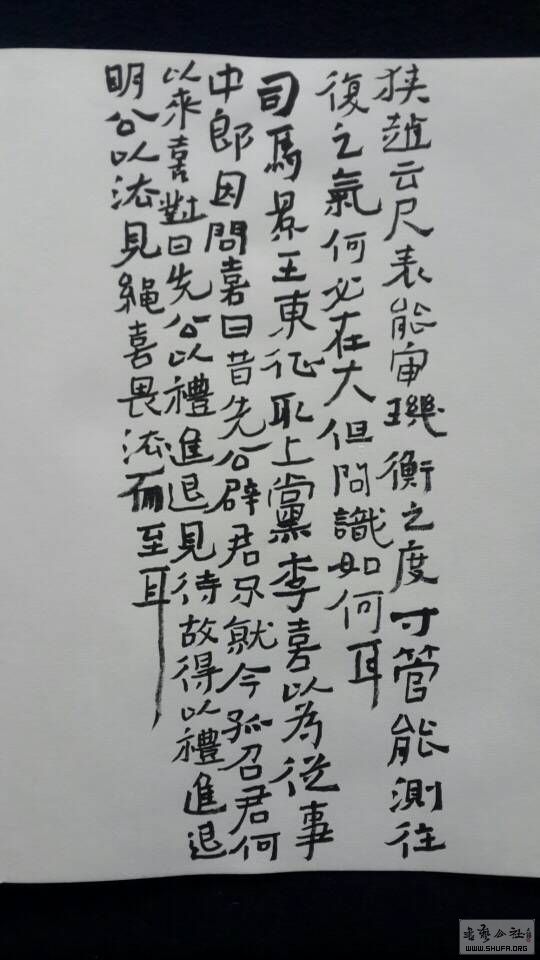 狭趙云尺表能审璣衡之度寸管能測往
復之氣何必在大但問識如何耳
司馬景王東征取上黨李喜以為從事
中郎因問喜曰昔先公辟君不就今孤召君何
以来喜對曰先公以禮進退見待故得以禮進退
明公以法見繩喜畏法而至耳
书艺公社
WWW.SHUFA.ORG